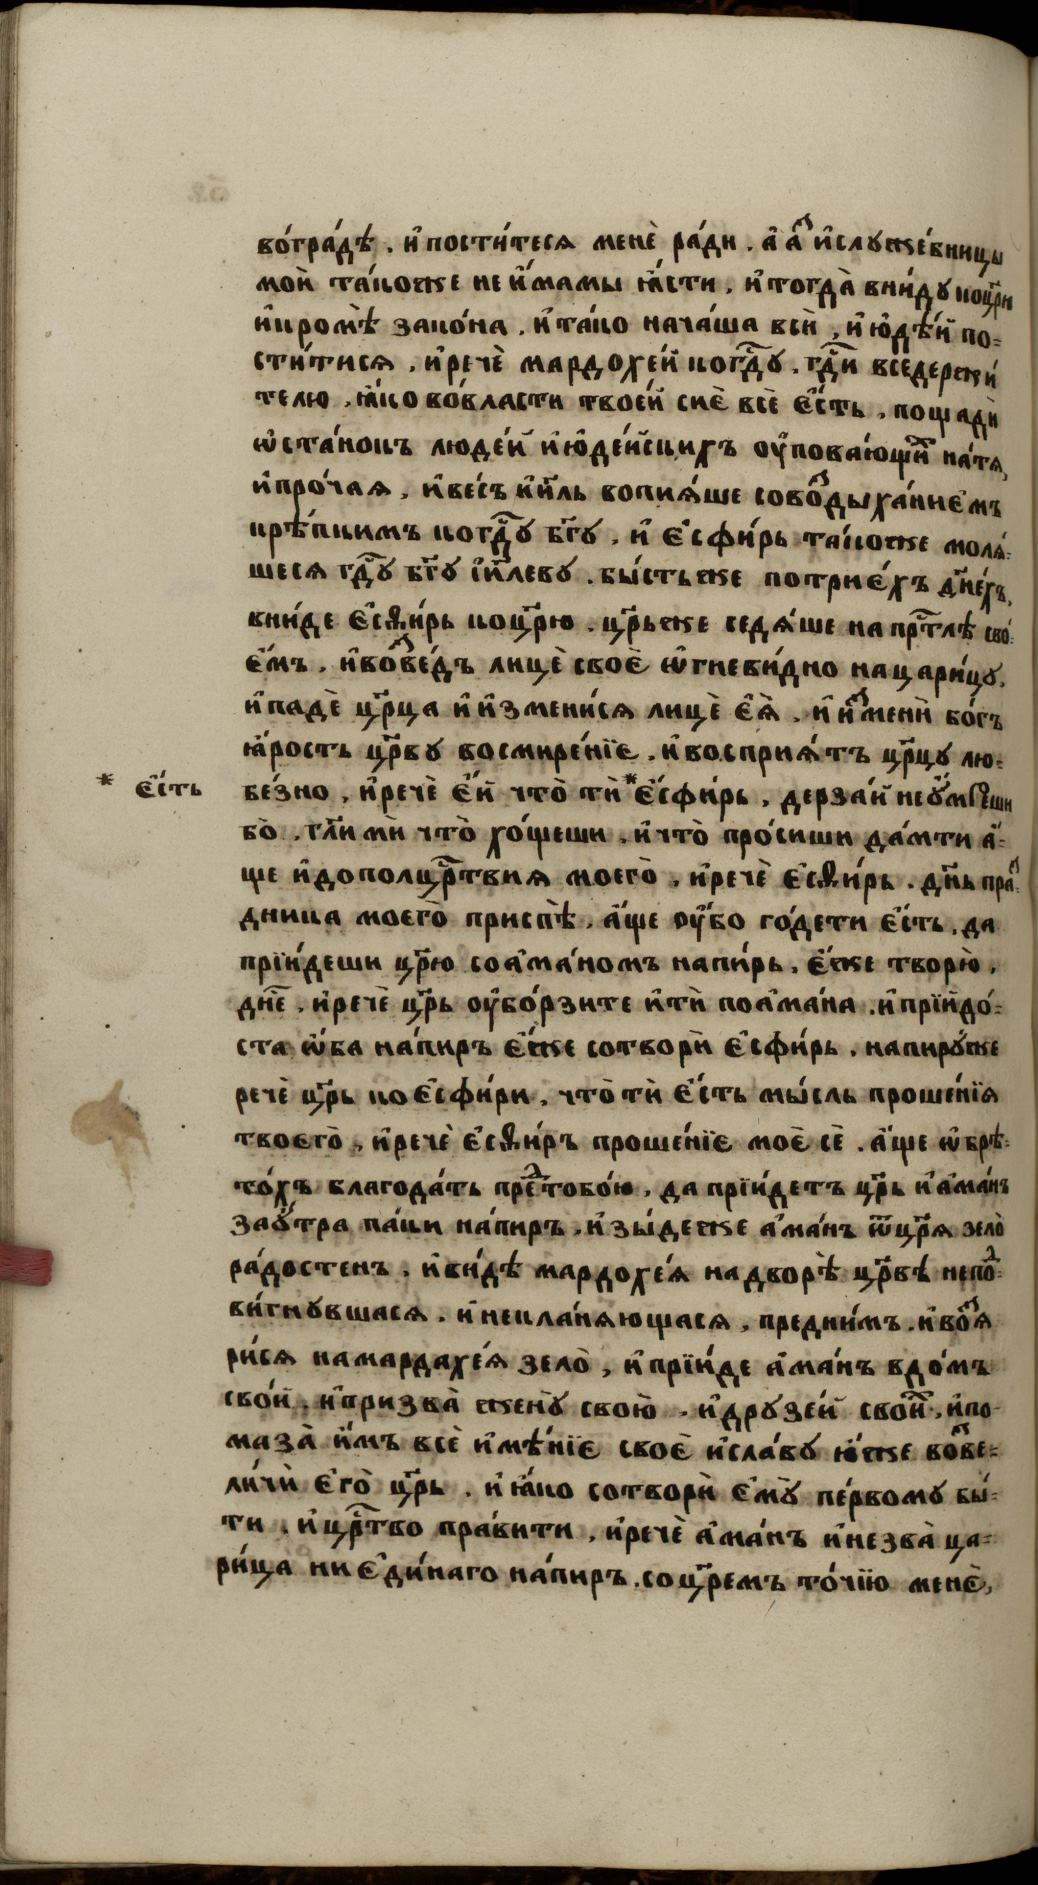 во́гра́дѣ . и҆пости́теся менѐ ра́ди . а҆ а҆́з и҆служе́вницы
моѝ та́коже не и҆́мамы ꙗ҆́сти , и҆тогда̀ вни́ду коцр҃ю
и҆кромѣ̀ зако́на , и҆та́ко нача́ша всѝ , и҆ю҆дѣ́й по=
сти́тися , и҆речѐ мардохе́й когдⷭ҇у . гдⷭ҇и вседержи́
телю , ꙗ҆́ко во́власти твое́й сиѐ всѐ є҆́сть , пощадѝ
ѡ҆ста́нокъ люде́й и҆ю҆де́йскихъ оу҆пова́ющиⷯ на́тя ,
и҆про́чая , и҆ве́съ и҆и҃ль вопия́ше совоⷥды́ханиемъ
крѣ́пкимъ когдⷭ҇у бг҃у , и҆ є҆сфи́рь та́коже моля́=
шеся гдⷭ҇у бг҃у і҆и҃леву . бы́стьже потрие́хъ дн҃е́хъ ,
вни́де є҆сѳи́рь коцр҃ю . цр҃ьже седя́ше напрⷭ҇тлѣ сво=
є́мъ , и҆воⷥве́дъ лицѐ своѐ ѡ҆гневи́дно нацари́цу ,
и҆падѐ цр҃ца и҆ и҆змени́ся лицѐ є҆ѧ̀ , и҆ и҆ⷥменѝ бо́гъ
ꙗ҆́рость цр҃ву восмире́нїе . и҆восприя́тъ цр҃цу лю=
* є҆́сть
бе́зно , и҆речѐ є҆́й что̀ тѝ * є҆сфи́рь , дерза́й неоу҆́мреши
бо̀ . гл҃и мѝ что̀ хо́щеши . и҆что̀ про́сиши да́мти а҆́=
ще и҆дополцрⷭ҇твия моего̀ , и҆речѐ є҆сѳи́рь . дн҃ь праⷥ=
дника моего̀ приспѣ̀ , а҆́ще оу҆́бо го́дети є҆́сть , да
прїи́деши цр҃ю соа҆ма́номъ напи́рь , є҆́же творю̀ ,
днⷭ҇е , и҆речѐ цр҃ь оу҆бо́рзите и҆тѝ поа҆ма́на . и҆прїидо́=
ста ѡ҆́ба на́пиръ є҆́же сотворѝ є҆сфи́рь , напиру́же
речѐ цр҃ь ко є҆сфи́ри , что̀ тѝ є҆́сть мы́сль проше́нїя
твоего̀ , и҆речѐ є҆сѳи́ръ проше́нїе моѐ сѐ . а҆́ще ѡ҆брѣ=
то́хъ благода́ть преⷣтобо́ю , да прїи́детъ цр҃ь и҆ а҆ма́нъ
зау́тра па́ки на́пиръ . и҆зы́деже а҆ма́нъ ѿцр҃я зело̀
ра́достенъ , и҆ви́дѣ мардохе́я надворѣ̀ цр҃вѣ́ непоⷣ=
ви́гнувшася . и҆некла́няющася , предни́мъ . и҆воⷥя
ри́ся намардахе́я зело̀ , и҆прїи́де а҆ма́нъ вдо́мъ
сво́й , и҆призва̀ жену̀ свою̀ . и҆друзе́й своиⷯ , и҆по
каза̀ и҆́мъ всѐ и҆мѣ́нїе своѐ и҆сла́ву ю҆́же воⷥве=
ли́чѝ є҆го̀ цр҃ь . и҆ ꙗ҆́ко сотворѝ є҆му̀ пе́рвому бы́=
ти . и҆црⷭ҇тво пра́вити , и҆речѐ а҆ма́нъ и҆незва̀ ца=
ри́ца ни є҆ди́наго на́пиръ . соцр҃емъ то́чїю менѐ ,